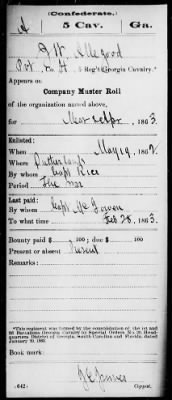 (Confederate.)
A 5 Cav. Ga.
J W Allegood
Pvt, Co. H, 5 Reg't Georgia Cavalry.*
Appears on
Company Muster Roll
of the organization named above,
for Mar & Apr, 1863.
Enlisted:
When May 19, 1862.
Where
By whom Capt Rice
Period The War
Last paid:
By whom Capt McGowen
To what time Feb 28, 1863.
Bounty paid $ 100; due $ 100
Present or absent Present
Remarks:
*This regiment was formed by the consolidation of the 1st and
2d Battalions Georgia Cavalry by Special Orders No. 20, Head-
quarters District of Georgia, South Carolina and Florida, dated
January 20, 1863.
Book mark:
(642) Copyist.